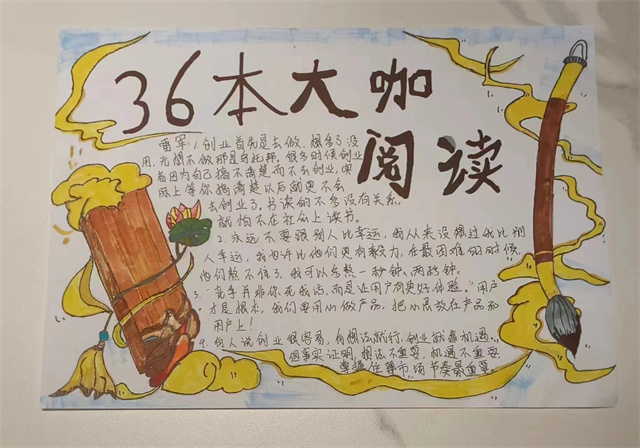 36本大咖
阅读
雷军1.创业首先是去做,想多了没
用,光想不做那是乌托邦。很多时候创业
者因为自己搞不清楚而不去创业,实
际上等你搞清楚以后就更不会
去创业了,书读的不多没有关系,
就怕不在社会上读书。
2.永远不要跟别人比幸运,我从来没想过我比别
人幸运,我也许比他们更有毅力,在最困难的时候
他们熬不住了,我可以多熬一秒钟、两秒钟。
3.高手并非你死我活,而是让用户有更好体验。"用户
才是根本,我们要用心做产品,把心思放在产品和
用户上!
4.有人说创业很容易,有想法就行,创业就靠机遇。
但事实证明,想法不重要,机遇不重要
掌握住 的节奏最重要。